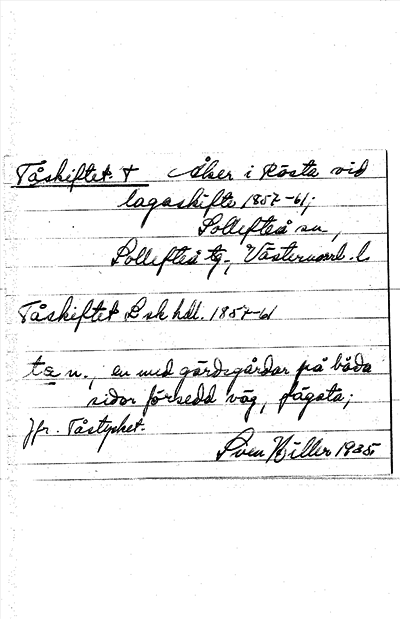 Tåskiftet † Åker i Rösta vid
lagaskifte 1857-61;
Sollefteå sn,
Sollefteå tg., Västernorrl. l.
Tåskiftet Lsk hdl. 1857-61
tå n., en med gärdsgårdar på båda
sidor försedd väg, fägata;
Jfr. Tåstycket.
Sven Hiller 1935